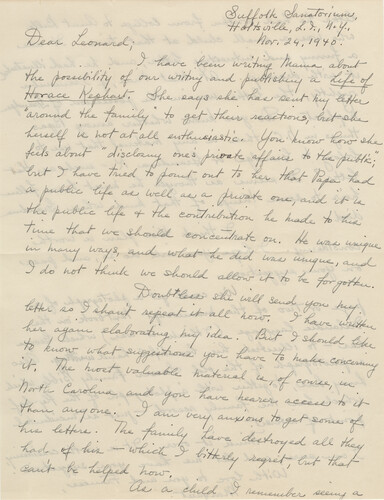 Suffolk Sanatorium,
Holtsville, L.I., N.Y.
Nov. 24, 1940.
Dear Leonard;
I have been writing Mama about
the possibility of our writing and publishing a Life of
Horace Kephart. She says she has sent my letter
"around the family" to get their reactions, but she
herself is not at all enthusiastic. You know how she
feels about "disclosing one's private affairs to the public;
but I have tried to point out to her that Papa had
a public life as well as a private one, and it is
the public life & the contribution he made to his
time that we should concentrate on. He was unique
in many ways, and what he did was unique, and
I do not think we should allow it to be forgotten.
Doubtless she will send you my
letter so I shant repeat it all now. I have written
her again elaborating my idea. But I should like
to know what suggestions you have to make concerning
it. The most valuable material is, of course, in
North Carolina and you have nearer access to it
than anyone. I am very anxious to get some of
his letters. The family have destroyed all they
had of his — which I bitterly regret, but that
can't be helped now.
As a child I remember seeing a